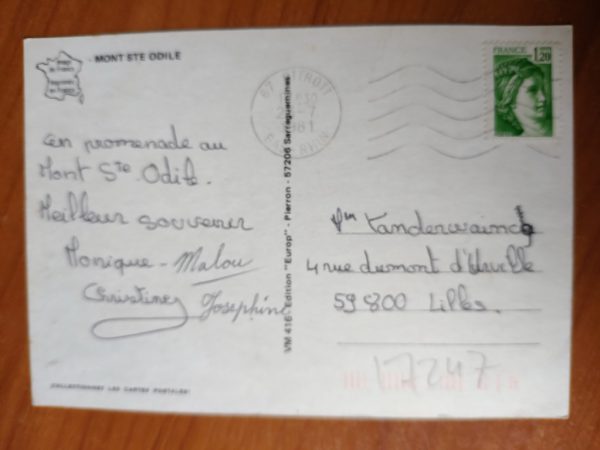 MONT STE ODILE
en promenade au
Mont Ste Odile.
Meilleur souvenir
Monique - Malou
Christine Josephine
COLLECTIONNEZ LES CARTES POSTALES!
VM 416 - Edition "Europ" - Pierron - 57206 Sarreguemines
67 OTTROTT
1981
BAS-RHIN
FRANCE
1,20
4 rue dumont d'Urville
59800 Lille.
17247